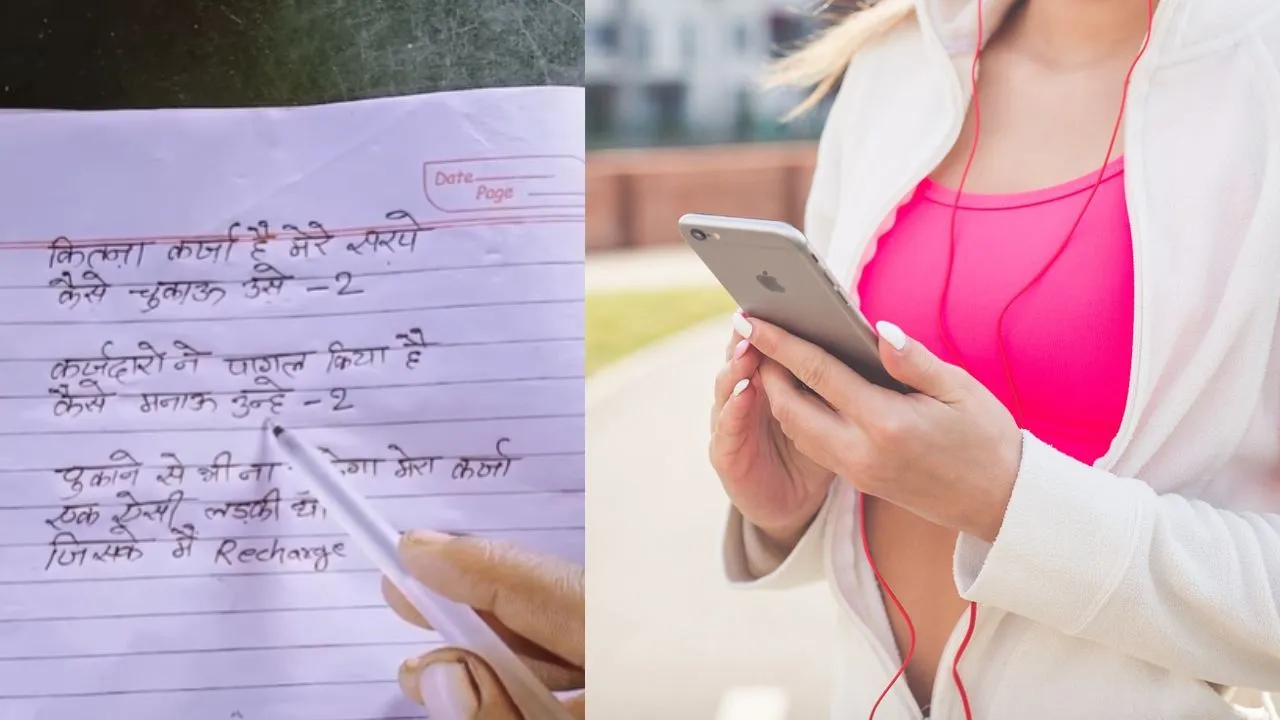 Date
Page
कितना कर्जा है मेरे सरपे
कैसे चुकाऊ उसे -2
कर्जदारो ने पागल किया है
कैसे मनाऊ उन्हे -2
चुकाने से भी ना मेरा कर्जा
एक ऐसी लड़की
जिसके मैं Recharge